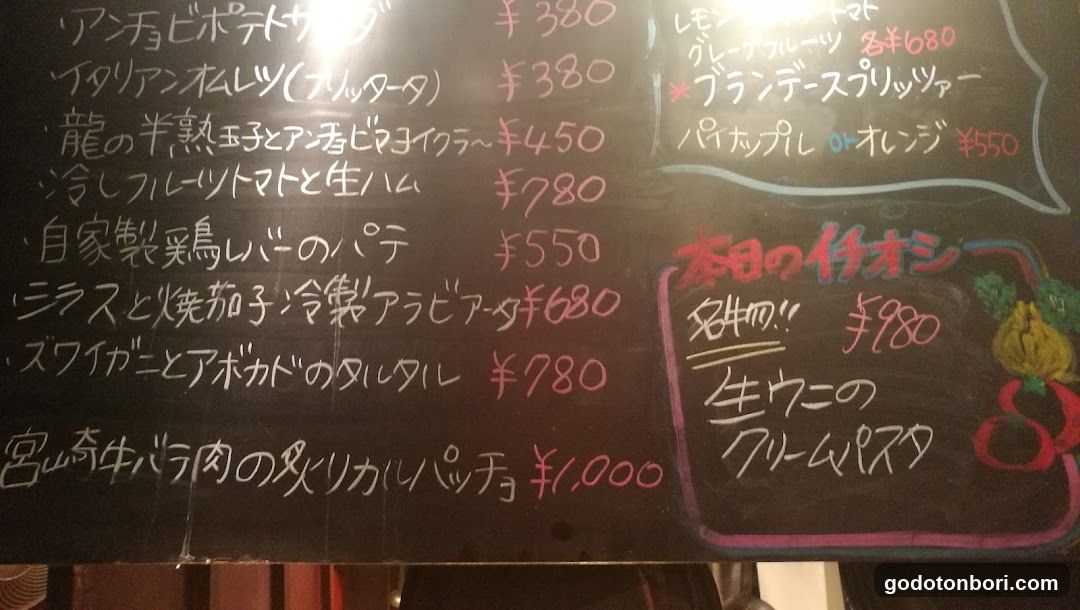 アンチョビポテトサラダ ¥380
イタリアンオムレツ(フリッタータ) ¥380
龍の半熟玉子とアンチョビマヨイクラ〜 ¥450
冷しフルーツトマトと生ハム ¥780
自家製鶏レバーのパテ ¥550
シラスと焼茄子冷製アラビアータ ¥680
ズワイガニとアボカドのタルタル ¥780
宮崎牛バラ肉の炙りカルパッチョ ¥1,000
レモン トマト
グレープフルーツ 各¥680
*ブランデースプリッツァー
パイナップル orオレンジ ¥550
本日のイチオシ
名物!! ¥980
生ウニの
クリームパスタ
godotonbori.com